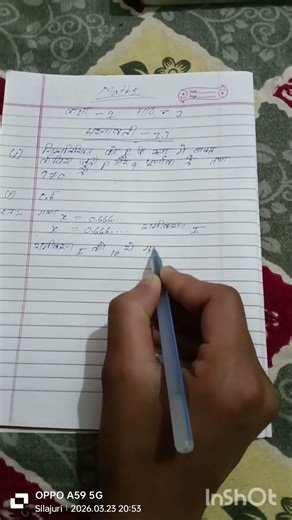 Maths
कक्षा - 9 पाठ - 1
प्रश्नावली - 1.1
निम्नलिखित को p के रूप में व्यक्त
जहाँ p और q पूर्णांक है तथा
q≠0
(i) 0.6
माना x = 0.666...
x = 0.666... समीकरण I
समीकरण I को 10 से
OPPO A59 5G
Silajuri | 2026.03.23 20:53
InShOt